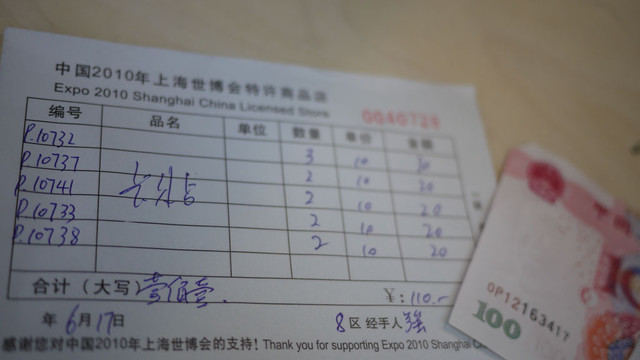 中国2010年上海世博会特许商品店
Expo 2010 Shanghai China Licensed Store
0040728
编号 品名 单位 数量 单价 金额
P.10732 3 10 30
P.10737 2 10 20
P.10741 2 10 20
P.10733 2 10 20
P.10738 2 10 20
合计（大写） ￥: 110.-
年 6月17日 8区 经手人
感谢您对中国2010年上海世博会的支持! Thank you for supporting Expo 2010 Shanghai
OP12163417
100